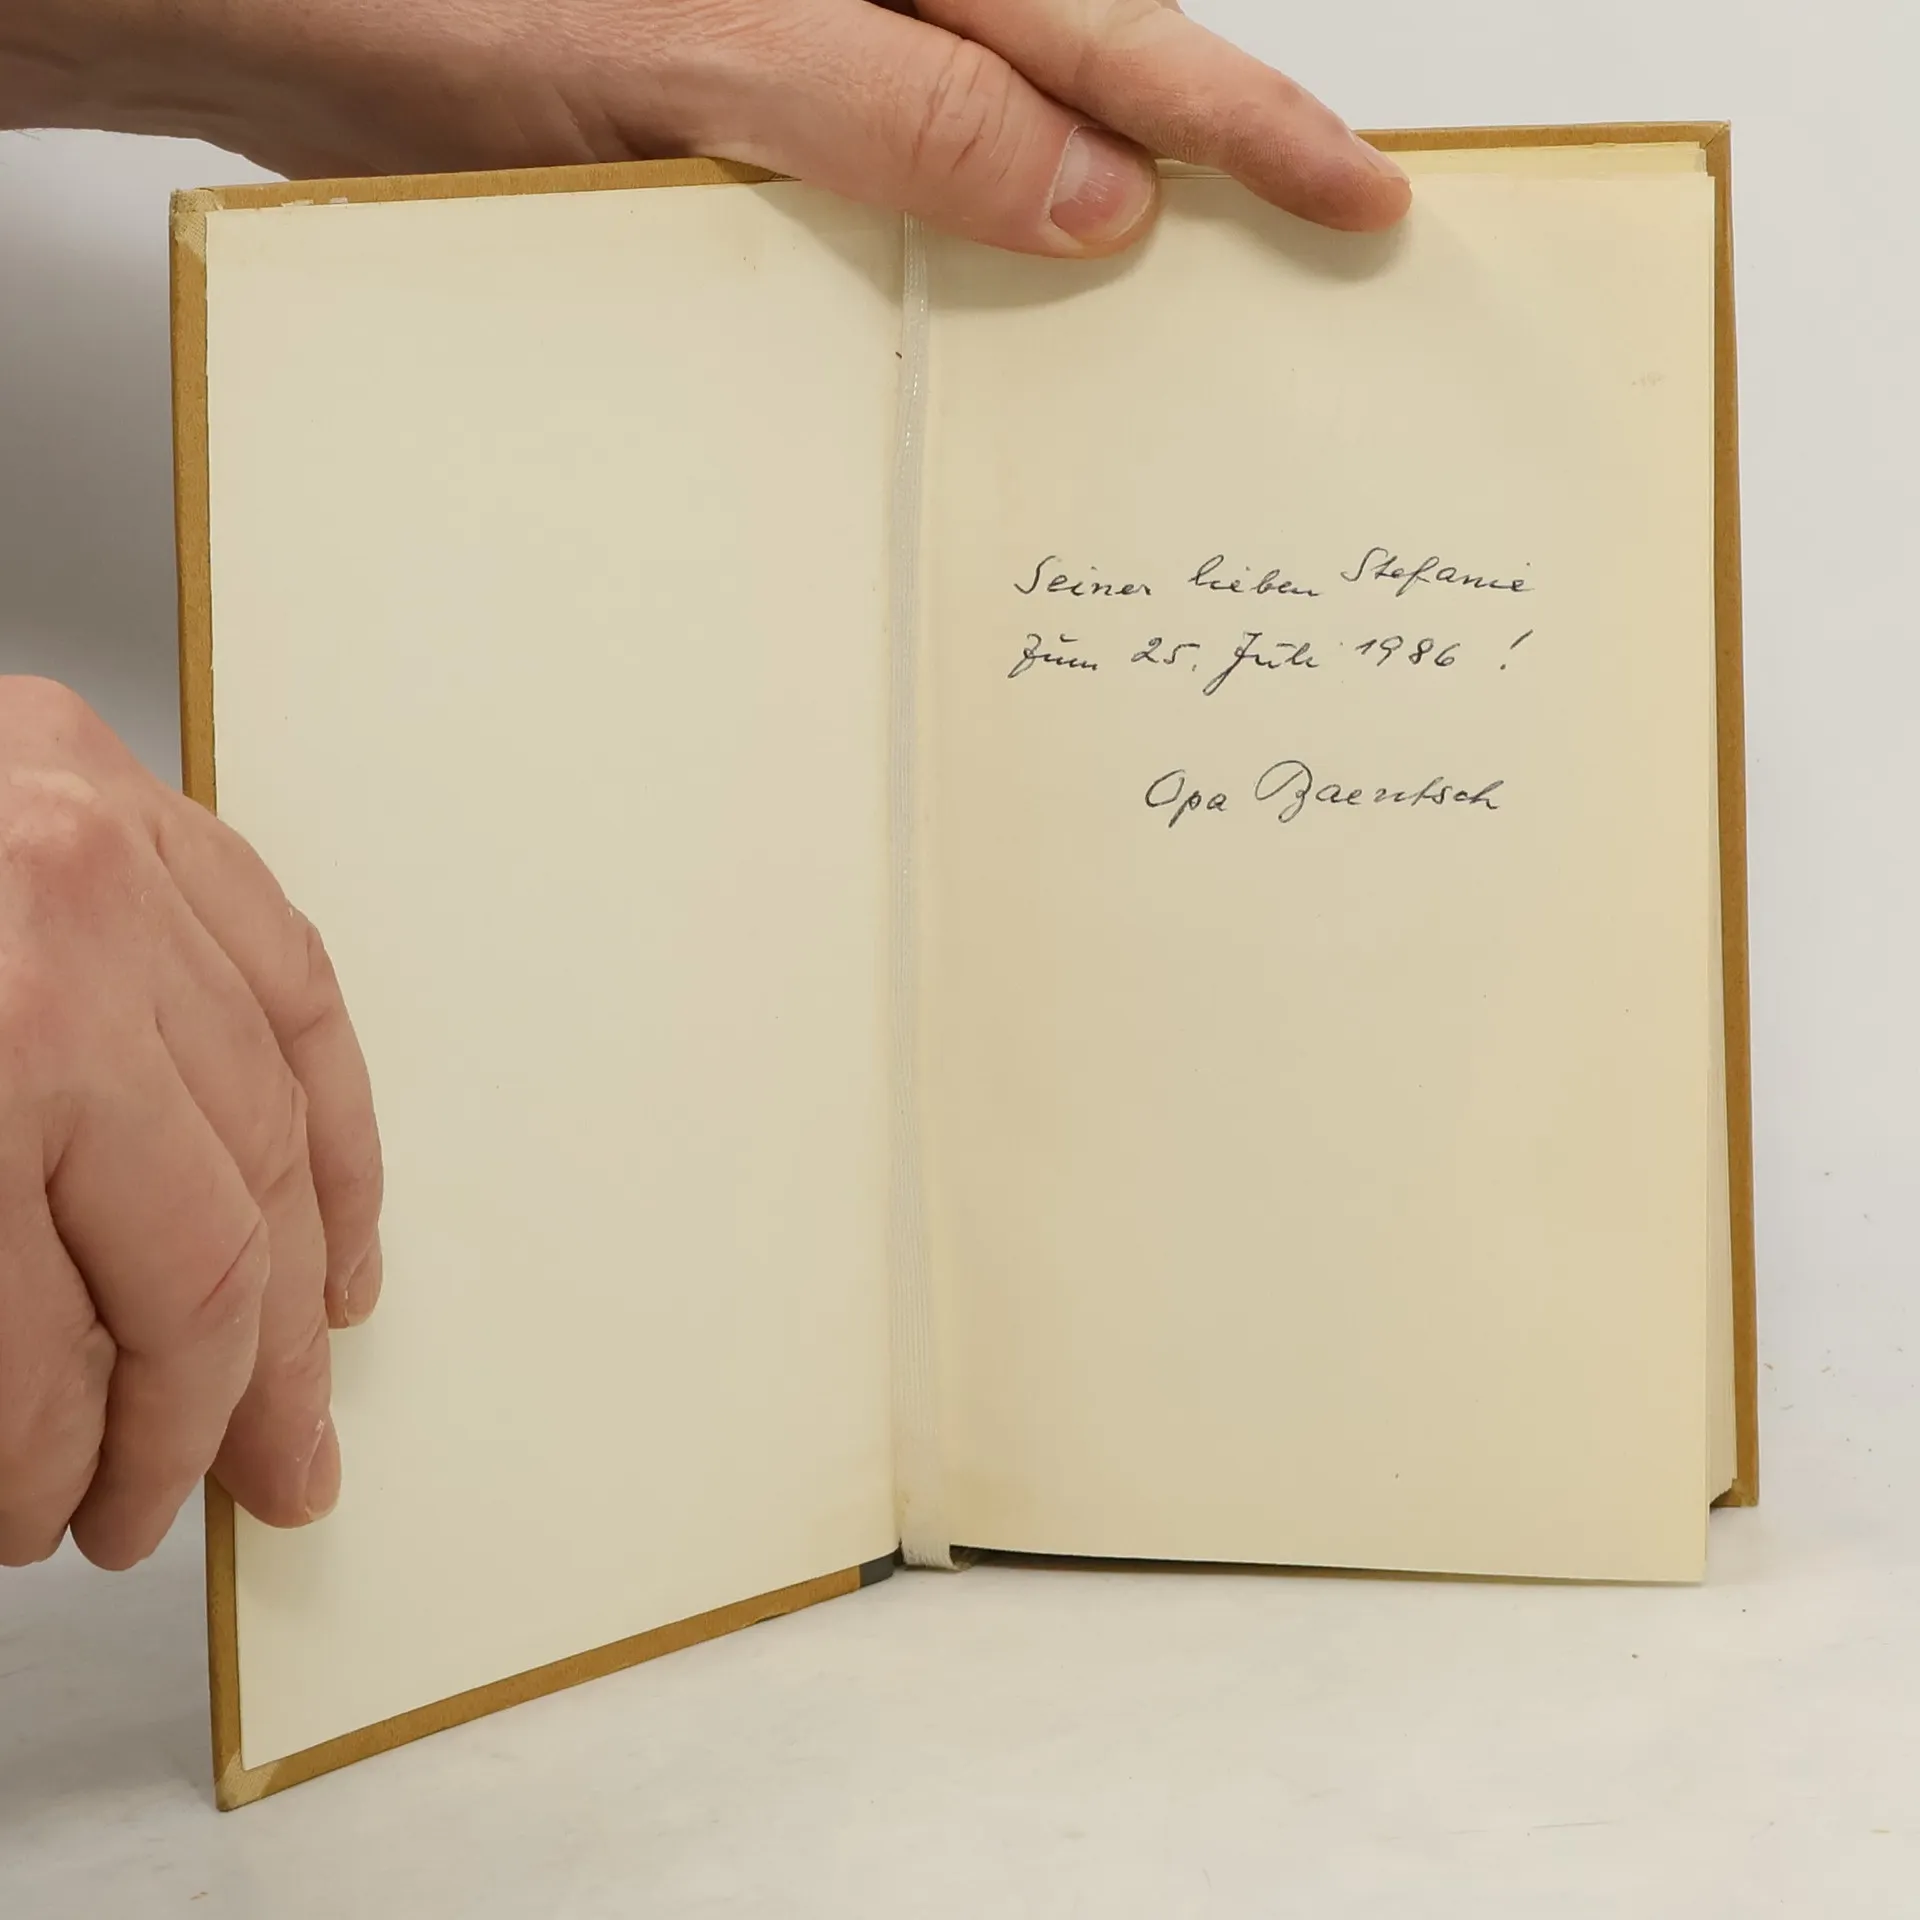 Seiner lieben Stefanie
zum 25. Juli 1986 !
Opa Baentsch